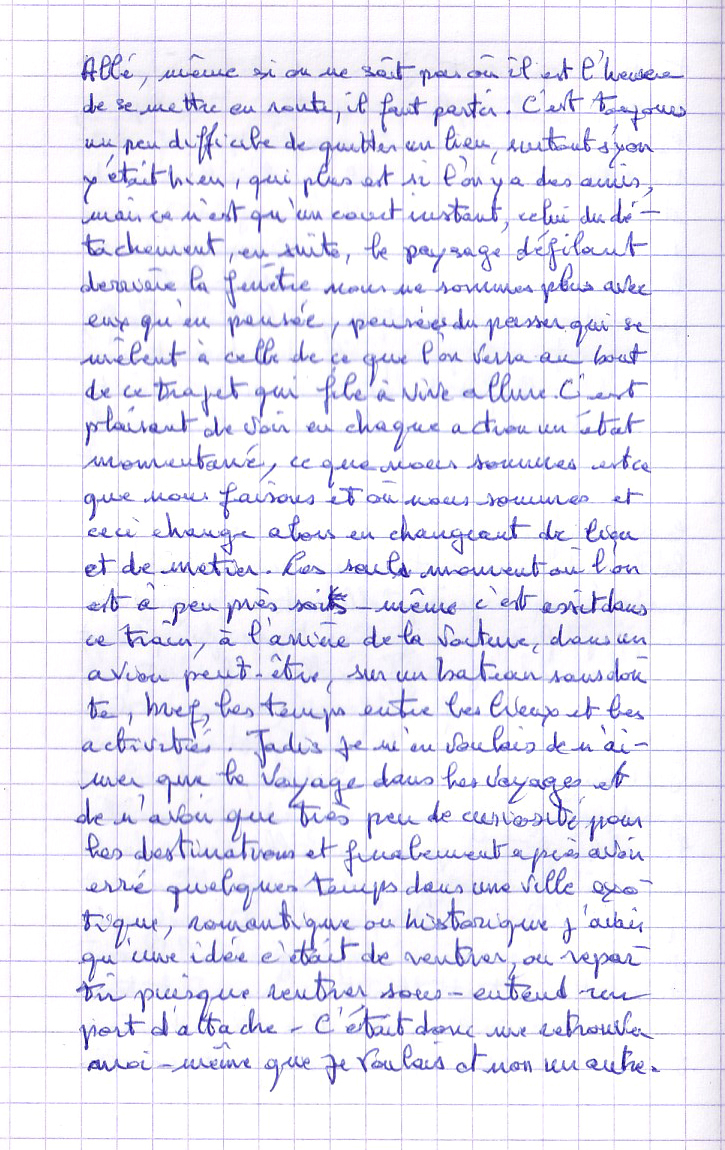 Allé, même si on ne sait pas où il est l'heure
de se mettre en route, il faut partir. C'est toujours
un peu difficile de quitter un lieu, surtout si on
y était bien, qui plus est si l'on y a des amis,
mais ce n'est qu'un court instant, celui du dé-
tachement, en suite, le paysage défilant
derrière la fenêtre nous ne sommes plus avec
eux qu'en pensée, pensées du passer qui se
mêlent à celle de ce que l'on verra au bout
de ce trajet qui file à vive allure. C'est
plaisant de voir en chaque action un état
momentané, ce que nous sommes est ce
que nous faisons et où nous sommes et
ceci change alors en changeant de lieu
et de métier. Les seuls moment où l'on
est à peu près soit-même c'est assit dans
ce train, à l'arrière de la voiture, dans un
avion peut-être, sur un bateau sans dou
te, bref, les temps entre les lieux et les
activités. Jadis je m'en voulais de n'ai-
mer que le voyage dans les voyages et
de n'avoir que très peu de curiosité pour
les destinations et finalement après avoir
erré quelques temps dans une ville exo-
tique, romantique ou historique j'avais
qu'une idée c'était de rentrer, ou repar-
tir puisque rentrer sous-entend un
port d'attache - C'était donc me retrouver
moi-même que je voulais et non un autre.